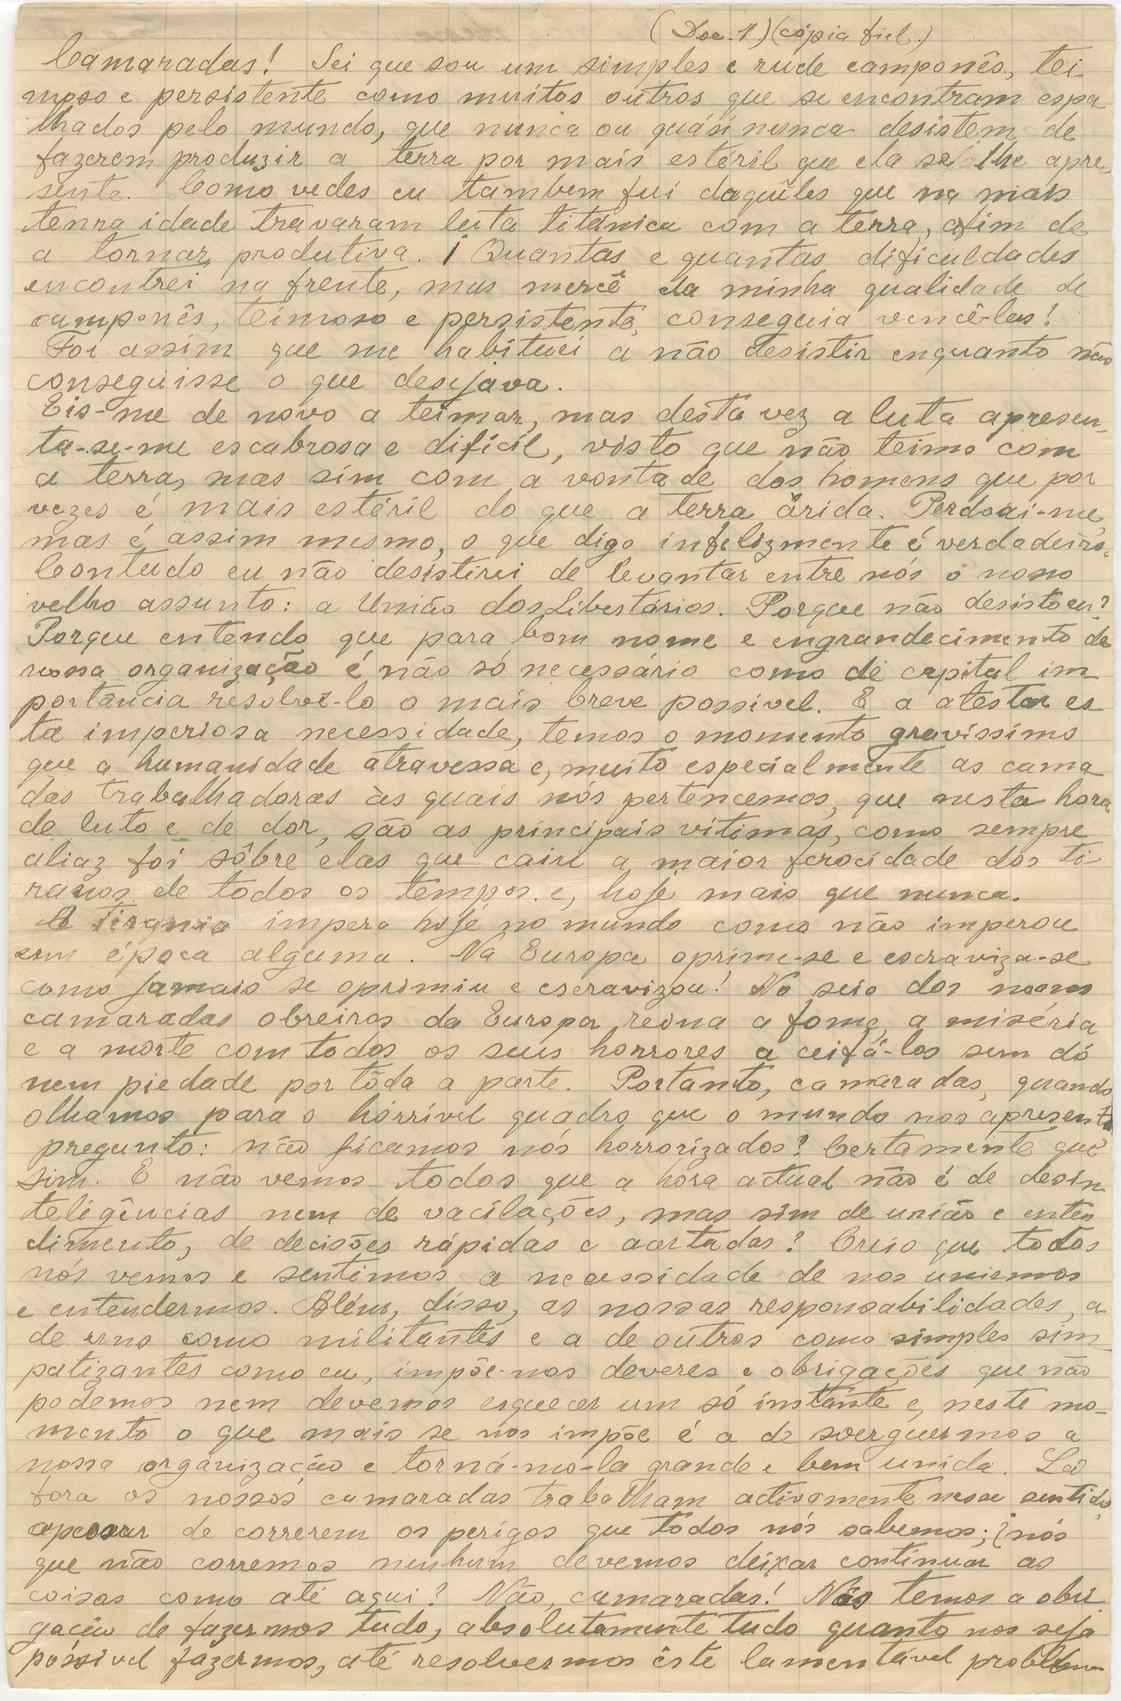 (Doc. 1) (cópia fiel.)
Camaradas! Sei que sou um simples e rude camponês, tei
moso e persistente como muitos outros que se encontram espa
lhados pelo mundo, que nunca ou quási nunca desistem de
fazerem produzir a terra por mais estéril que ela se lhe apre
sente. Como vedes eu tambem fui daquêles que na mais
tenra idade travaram luta titânica com a terra, afim de
a tornar produtiva. ¡ Quantas e quantas dificuldades
encontrei na frente, mas mercê da minha qualidade de
camponês, teimoso e persistente, conseguia vencê-las!
Foi assim que me habituei a não desistir enquanto não
conseguisse o que desejava.
Eis-me de novo a teimar, mas desta vez a luta apresen-
ta-se-me escabrosa e difícil, visto que não teimo com
a terra, mas sim com a vontade dos homens que por
vezes é mais estéril do que a terra árida. Perdoai-me,
mas é assim mesmo, o que digo infelizmente é verdadeiro.
Contudo eu não desistirei de levantar entre nós o nosso
velho assunto: a União dos Libertários. Porque não desisto eu?
Porque entendo que para bom nome e engrandecimento da
nossa organização é não só necessário como de capital im
portância resolvê-lo o mais breve possivel. E a atestar es
ta imperiosa necessidade, temos o momento gravíssimo
que a humanidade atravessa e, muito especialmente as cama
das trabalhadoras às quais nós pertencemos, que nesta hora
de luto e de dor, são as principais vítimas, como sempre
aliaz foi sôbre elas que caiu a maior ferocidade dos ti
ranos de todos os tempos e, hoje mais que nunca.
A tirania impera hoje no mundo como não imperou
em época alguma. Na Europa oprime-se e escraviza-se
como jamais se oprimiu e escravizou! No seio dos nossos
camaradas obreiros da Europa reina a fome, a miséria
e a morte com todos os seus horrores a ceifá-los sem dó
nem piedade por tôda a parte. Portanto, camaradas, quando
olhamos para o hórrível quadro que o mundo nos apresenta
pregunto: não ficamos nós horrorizados? Certamente que
sim. E não vemos todos que a hora actual não é de desin
teligências nem de vacilações, mas sim de união e enten
dimento, de decisões rápidas e acertadas? Creio que todos
nós vemos e sentimos a necessidade de nos unirmos
e entendermos. Além, disso, as nossas responsabilidades, a
de uns como militantes e a de outros como simples sim
patizantes como eu, impõe-nos deveres e obrigações que não
podemos nem devemos esquecer um só instante e, neste mo-
mento o que mais se nos impõe é a de soerguermos a
nossa organização e torná-mó-la grande e bem unida. Lá
fora os nossos camaradas trabalham activamente nesse sentido,
apesar de correrem os perigos que todos nós sabemos; ¿nós
que não corremos nenhum devemos deixar continuar as
coisas como até aqui? Não, camaradas! Nós temos a obri
gação de fazermos tudo, absolutamente tudo quanto nos seja
póssivel fazermos, até resolvermos êste lamentável problema